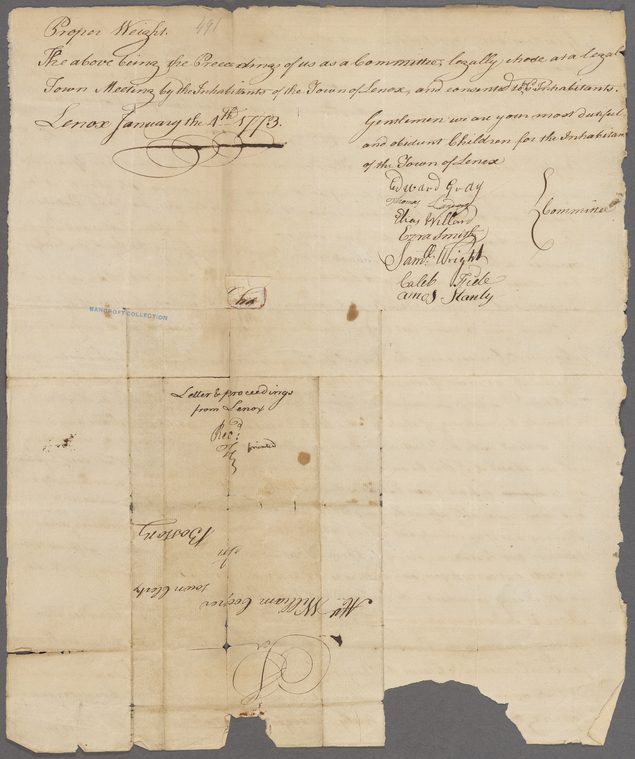 Proper Weight. 491
The above being the Preceedings of us as a Committee, legally chose at a legal
Town Meeting by the Inhabitants of the Town of Lenox, and consented to by Inhabitants.
Lenox January the 4th 1773.
Gentlemen we are your most dutiful
and obedient Children for the Inhabitan
of the Town of Lenox
Edward Gray
Thomas
Elias Willard
Ezra Smith
Saml. Wright
Caleb Hide
amos Stanly
Committee
BANCROFT COLLECTION
Letter & proceedings
from Lenox
Recd.
printed
To
Mr. William Cooper
Town Clerk
In
Boston